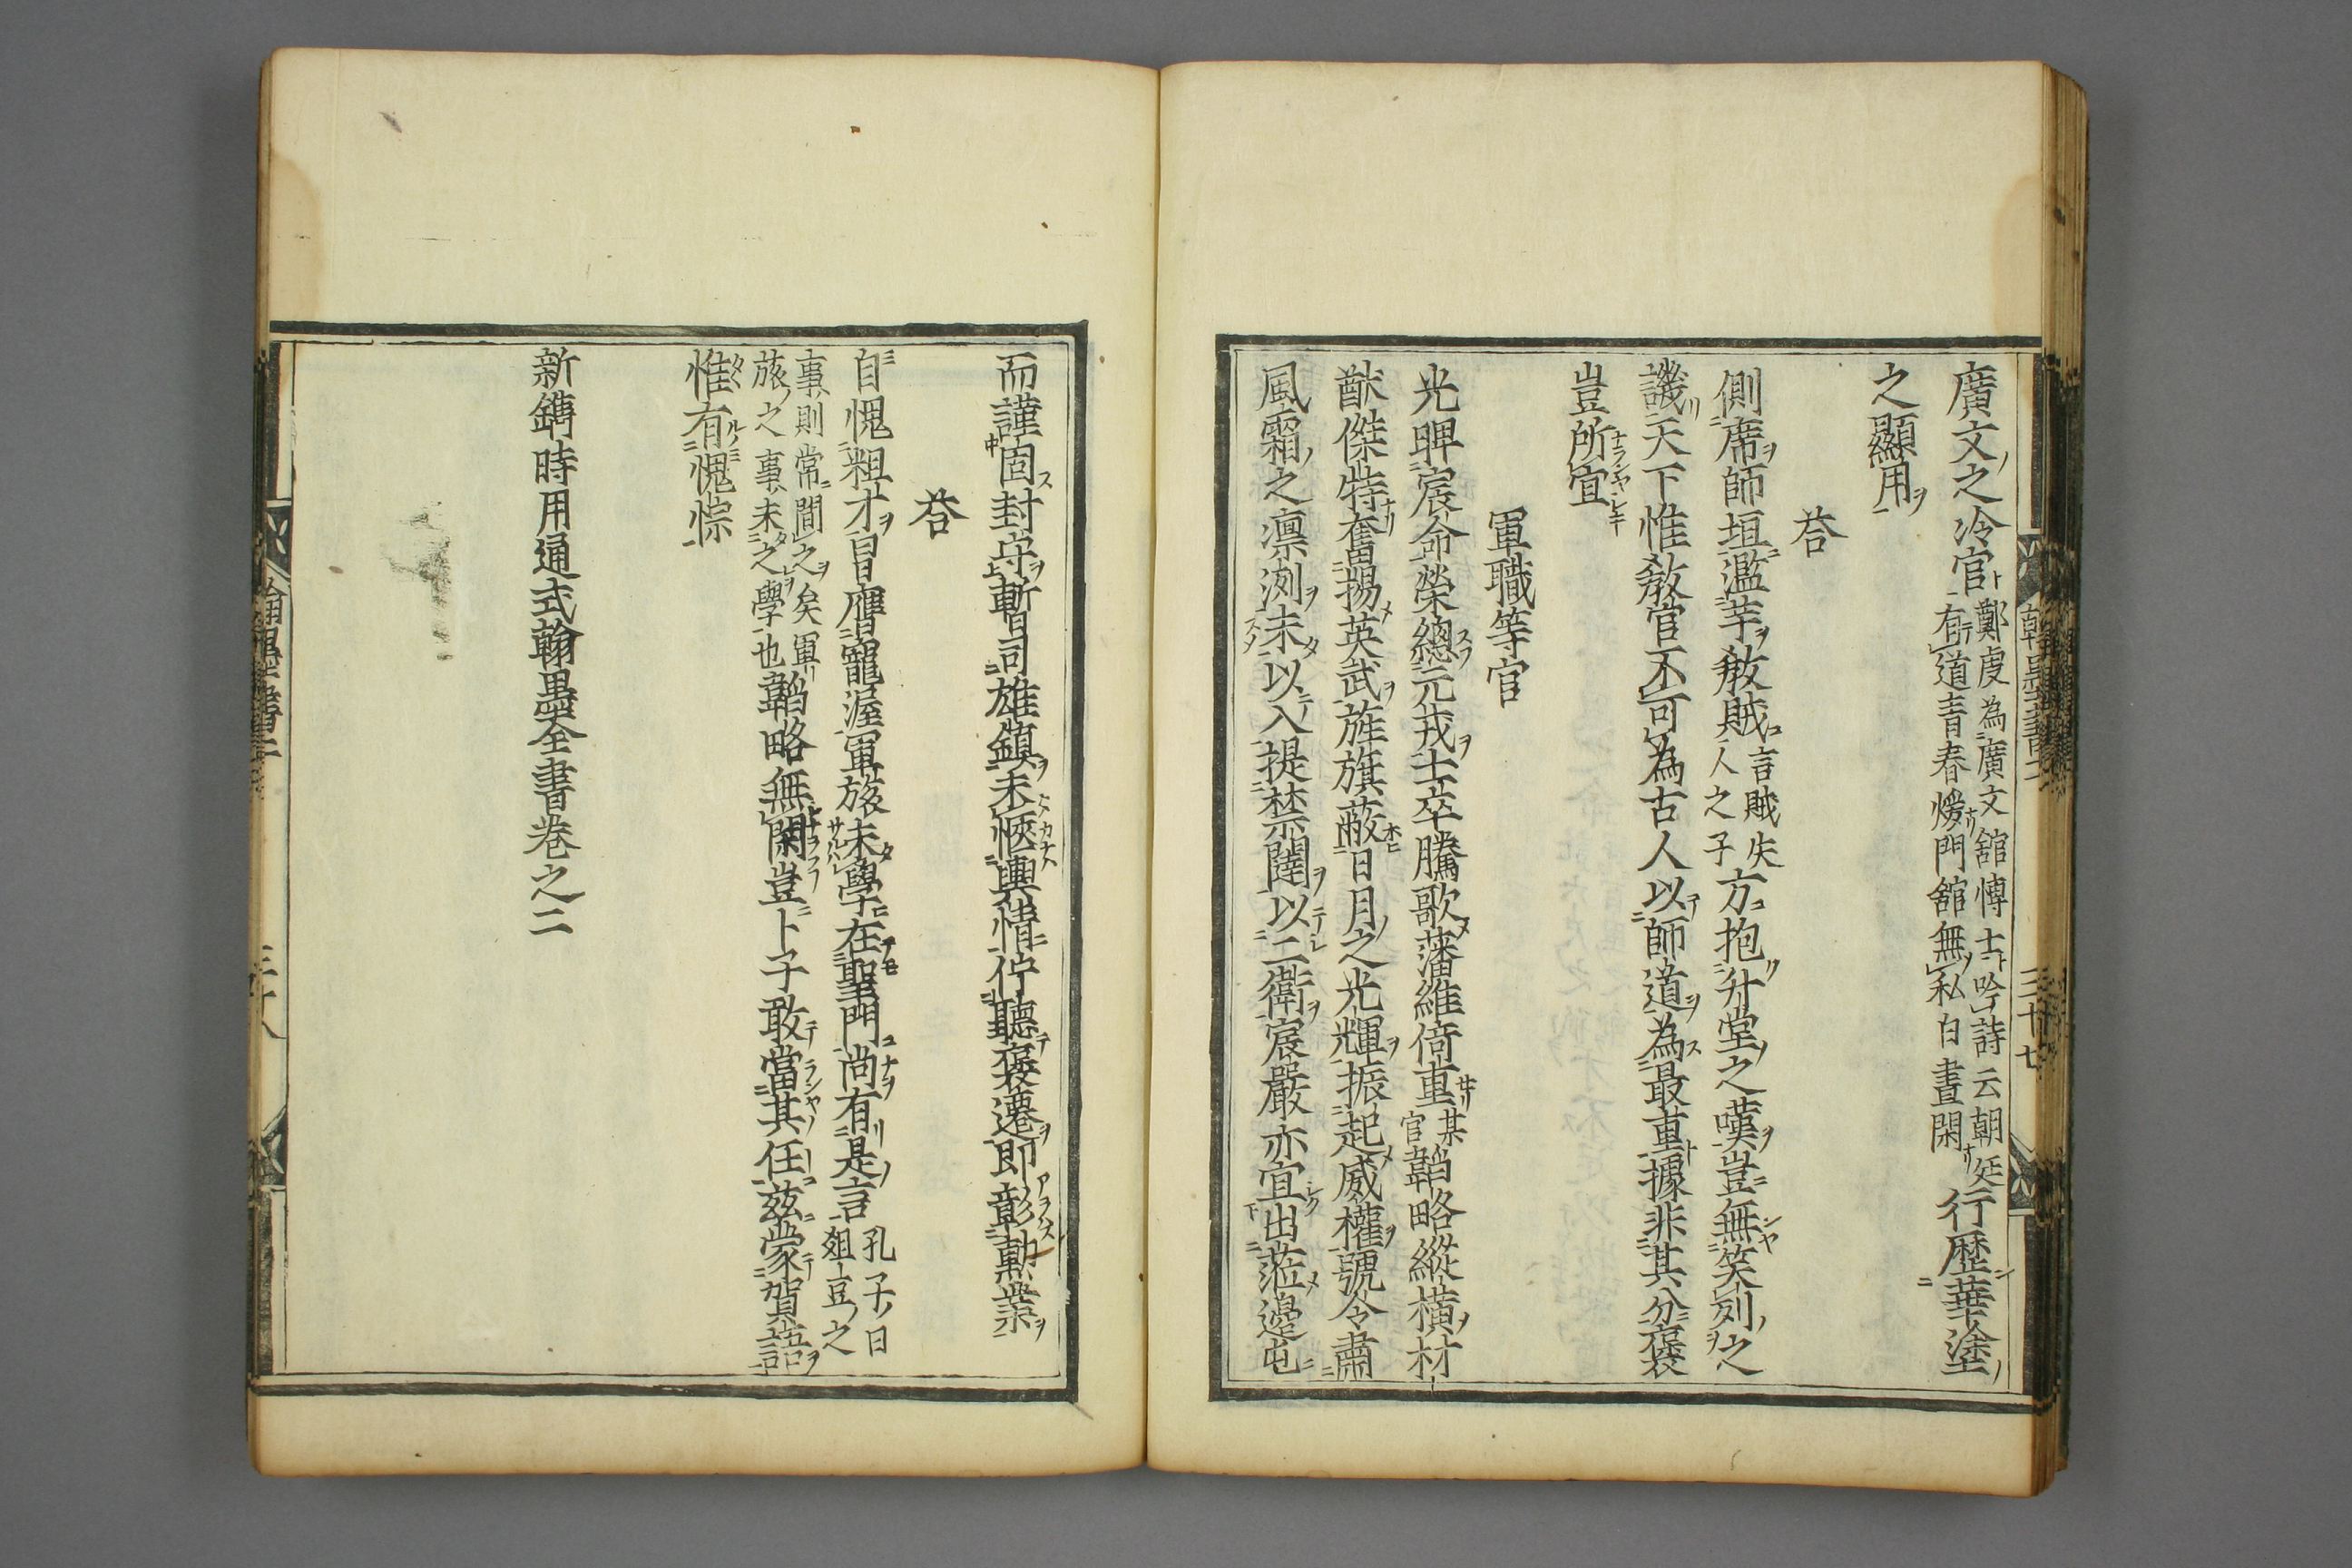 廣文之冷官鄭虔為廣文舘博士吟詩云朝廷有道青春煖門舘無私白晝閑行歴華塗
之顯用
荅
側席師垣濫芋敎賊言賊失人之子方抱升堂之嘆豈無笑列之
譏天下惟敎官不可為古人以師道為最重據非其分褒
豈所宜
軍職等官
光畀宸命榮總元戎士卒騰歌藩維倚重某官韜略縱横材
猷傑特奮揚英武旌旗蔽日月之光輝振起威權號令肅
風霜之凛冽未以入提禁闥以二衛宸嚴亦宜出蒞邉屯
翰墨全書二
三十七
而謹固封守暫司雄鎮未愜輿情佇聽褒遷即彰勲業
荅
自愧粗才冒膺寵渥軍旅未學在聖門尚有是言孔子曰俎豆之
事則常聞之矣軍旅之事未之學也韜略無閑豈卜子敢當其任兹蒙賀語
惟有愧悰
新鐫時用通式翰墨全書卷之二
翰墨全書二
三十八